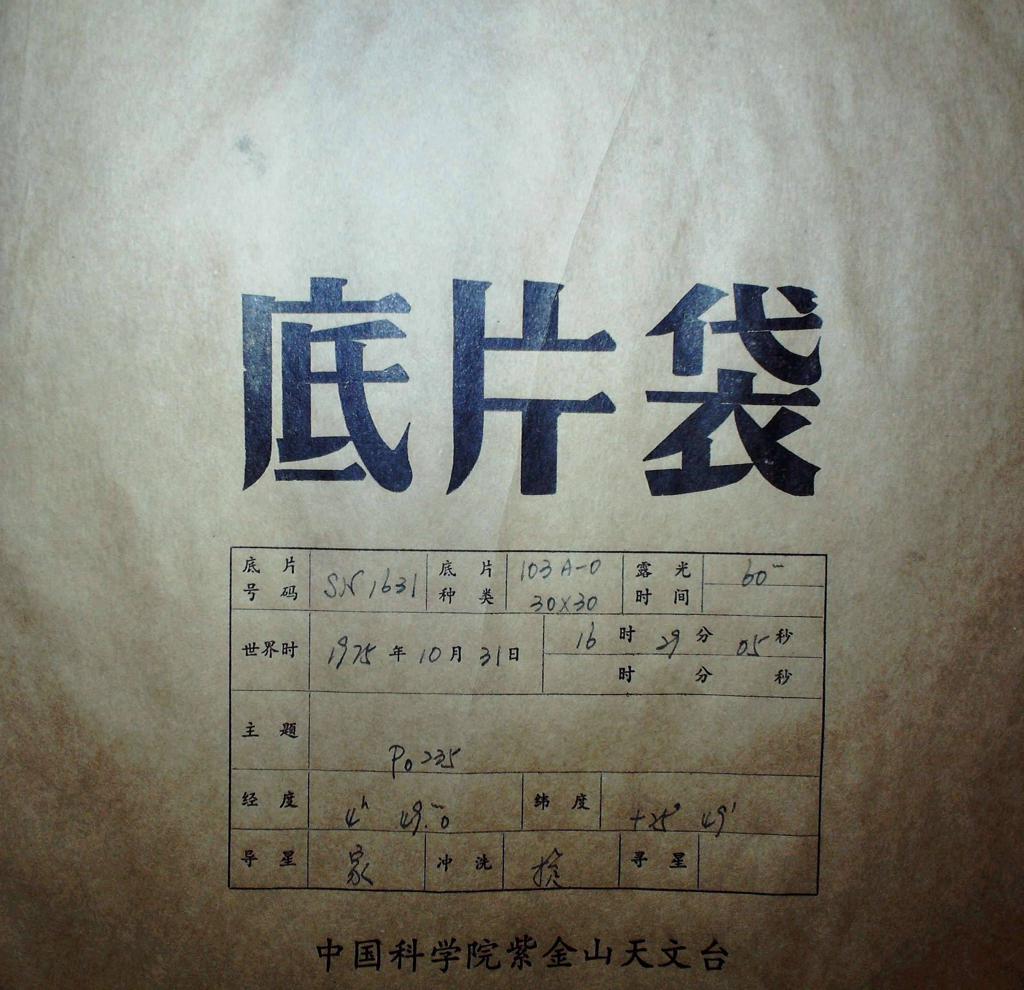 底片袋
底片号码 SN 1631 底片种类 103A-0 30X30 露光时间 60ᵐ
世界时 1975年10月31日 16时29分05秒
时 分 秒
主题 P₀ 235
经度 4ʰ 49.ᵐ0 纬度 +25° 49'
导星 家 冲洗 寻星
中国科学院紫金山天文台